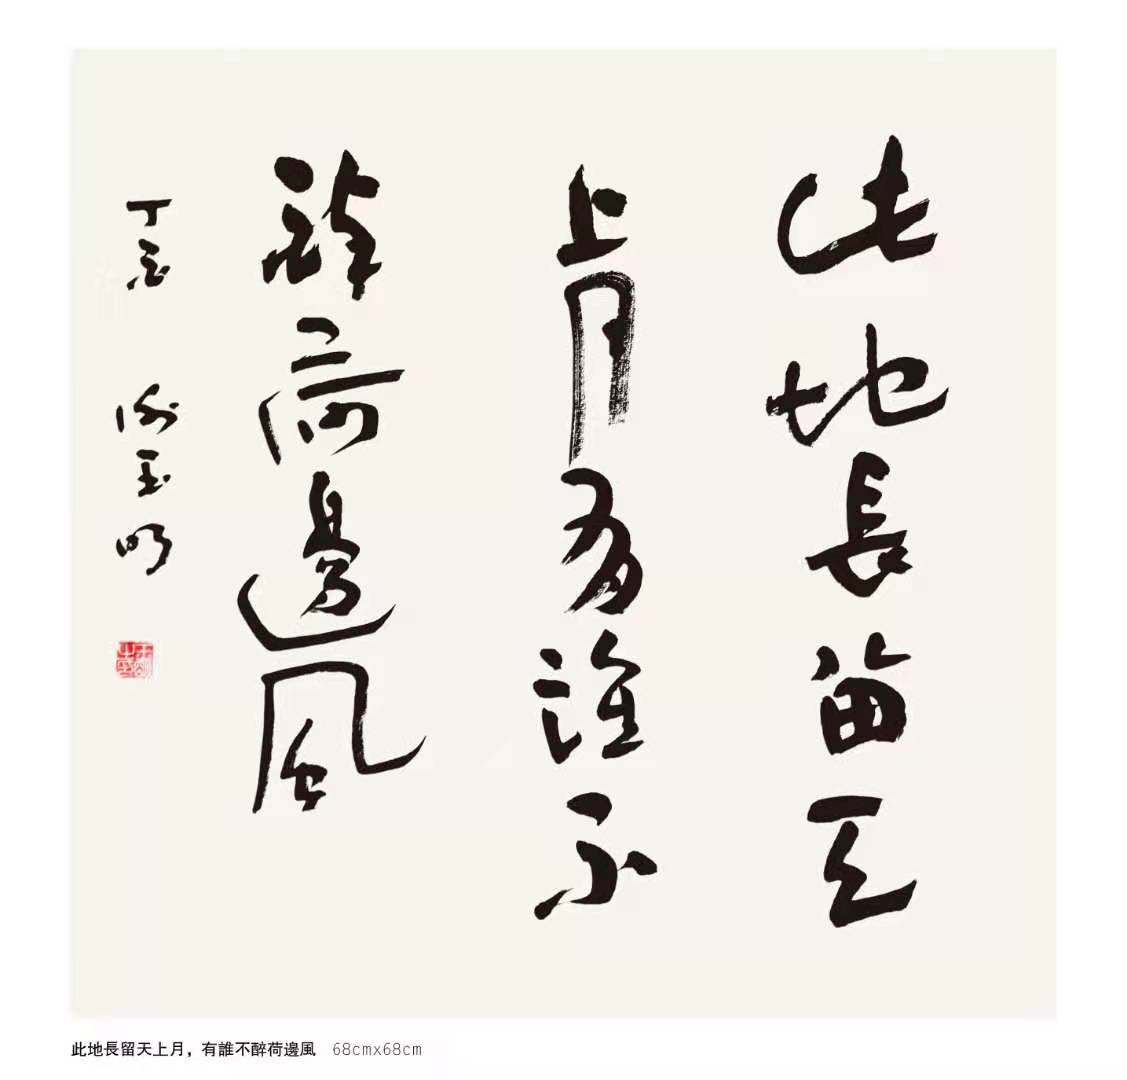 此地長留天
上月有誰不
醉荷邊風
丁酉 謝玉明
此地長留天上月，有誰不醉荷邊風 68cmx68cm